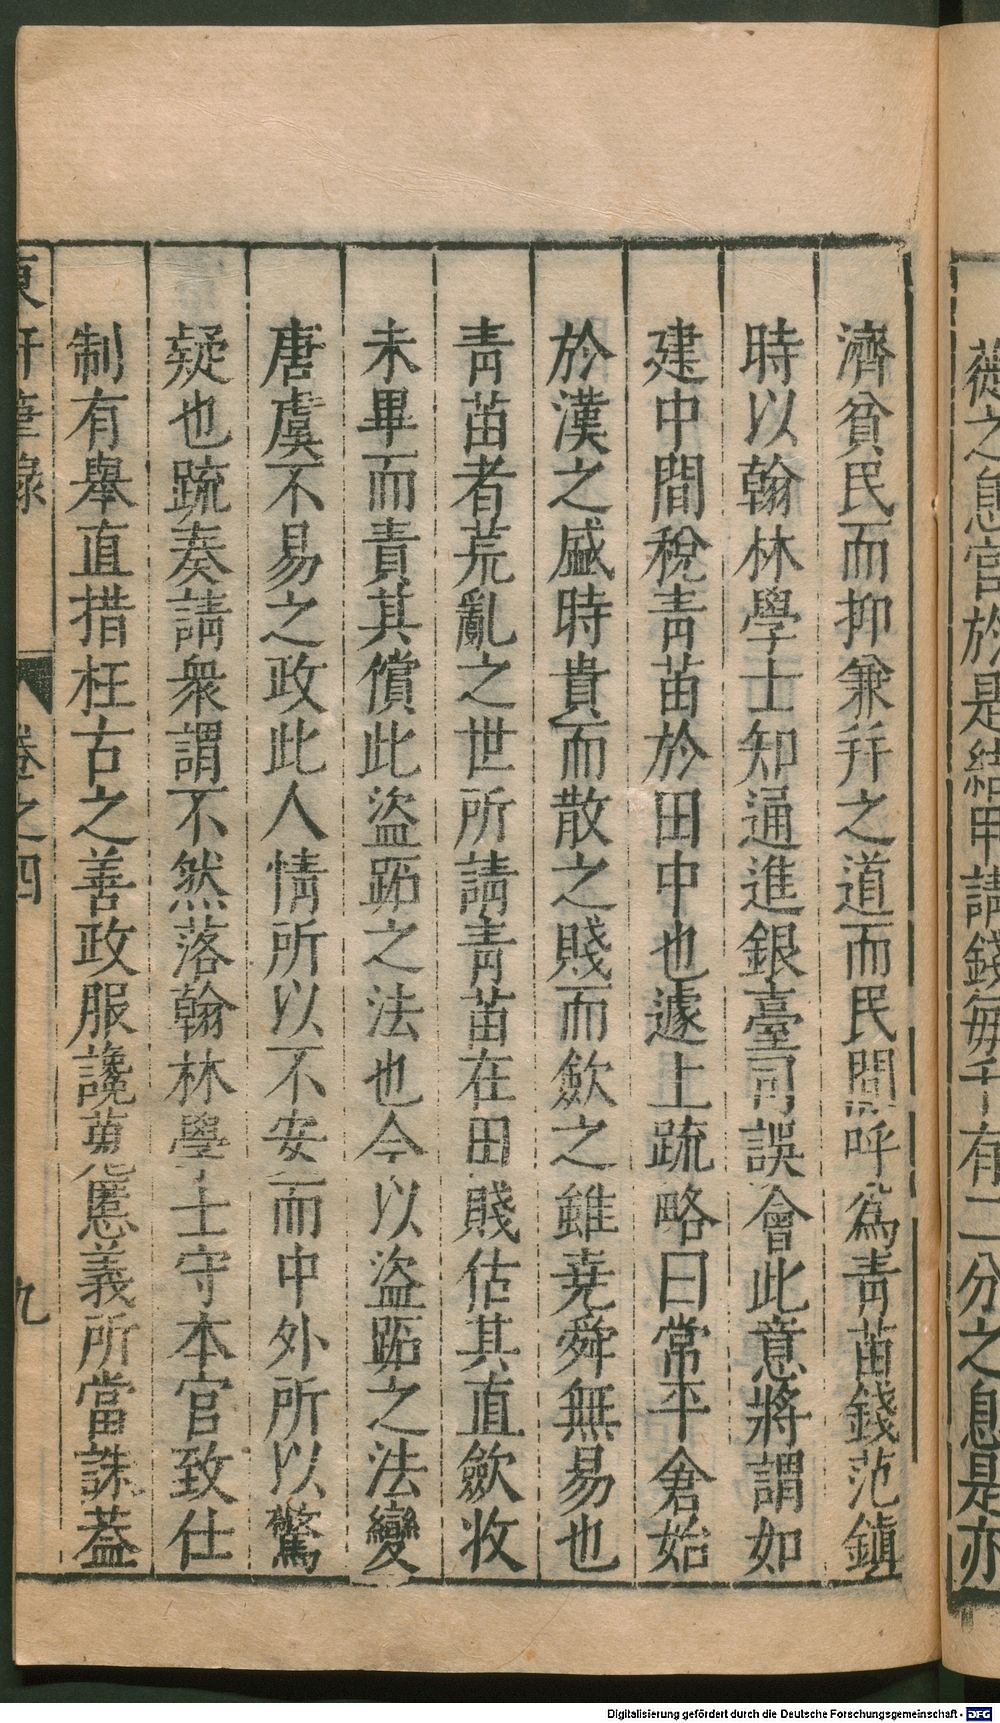 薇之怠官於是結甲請錢每千有二分之息是亦
濟貧民而抑兼幷之道而民間呼爲靑苗錢范鎭
時以翰林學士知通進銀臺司誤會此意將謂如
建中間稅靑苗於田中也遽上疏略曰常平倉始
於漢之盛時貴而散之賤而斂之雖堯舜無易也
靑苗者荒亂之世所請靑苗在田賤估其直斂收
未畢而責其償此盜跖之法也今以盜跖之法變
唐虞不易之政此人情所以不安而中外所以驚
疑也疏奏請衆謂不然落翰林學士守本官致仕
制有舉直措枉古之善政服讒蒐慝義所當誅蓋
東軒筆錄
卷之四
九
Digitalisierung gefördert durch die Deutsche Forschungsgemeinschaft - DFG